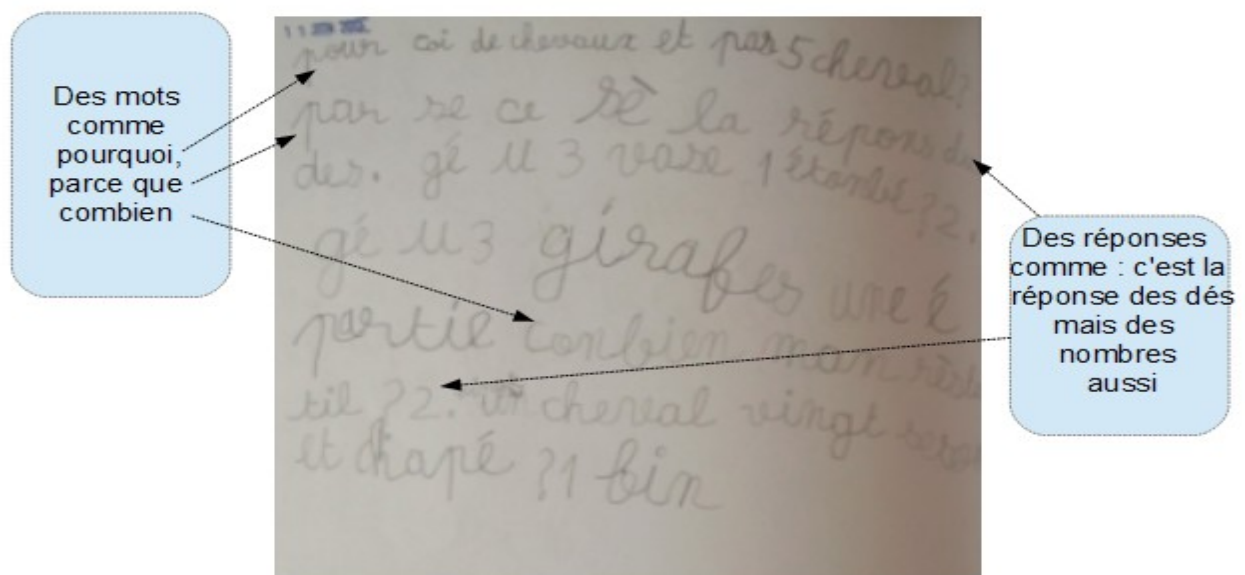 Des mots
comme
pourquoi,
parce que
combien
pour coi de chevaux et pas 5 cheval?
par se ce sè la répons de
des. gé u 3 vase 1 étonbé ? 2.
gé u 3 girafes une é
partie conbien man rèste
til ? 2. un cheval vingt
et chapé ? 1 bin
Des réponses
comme : c'est la
réponse des dés
mais des
nombres
aussi